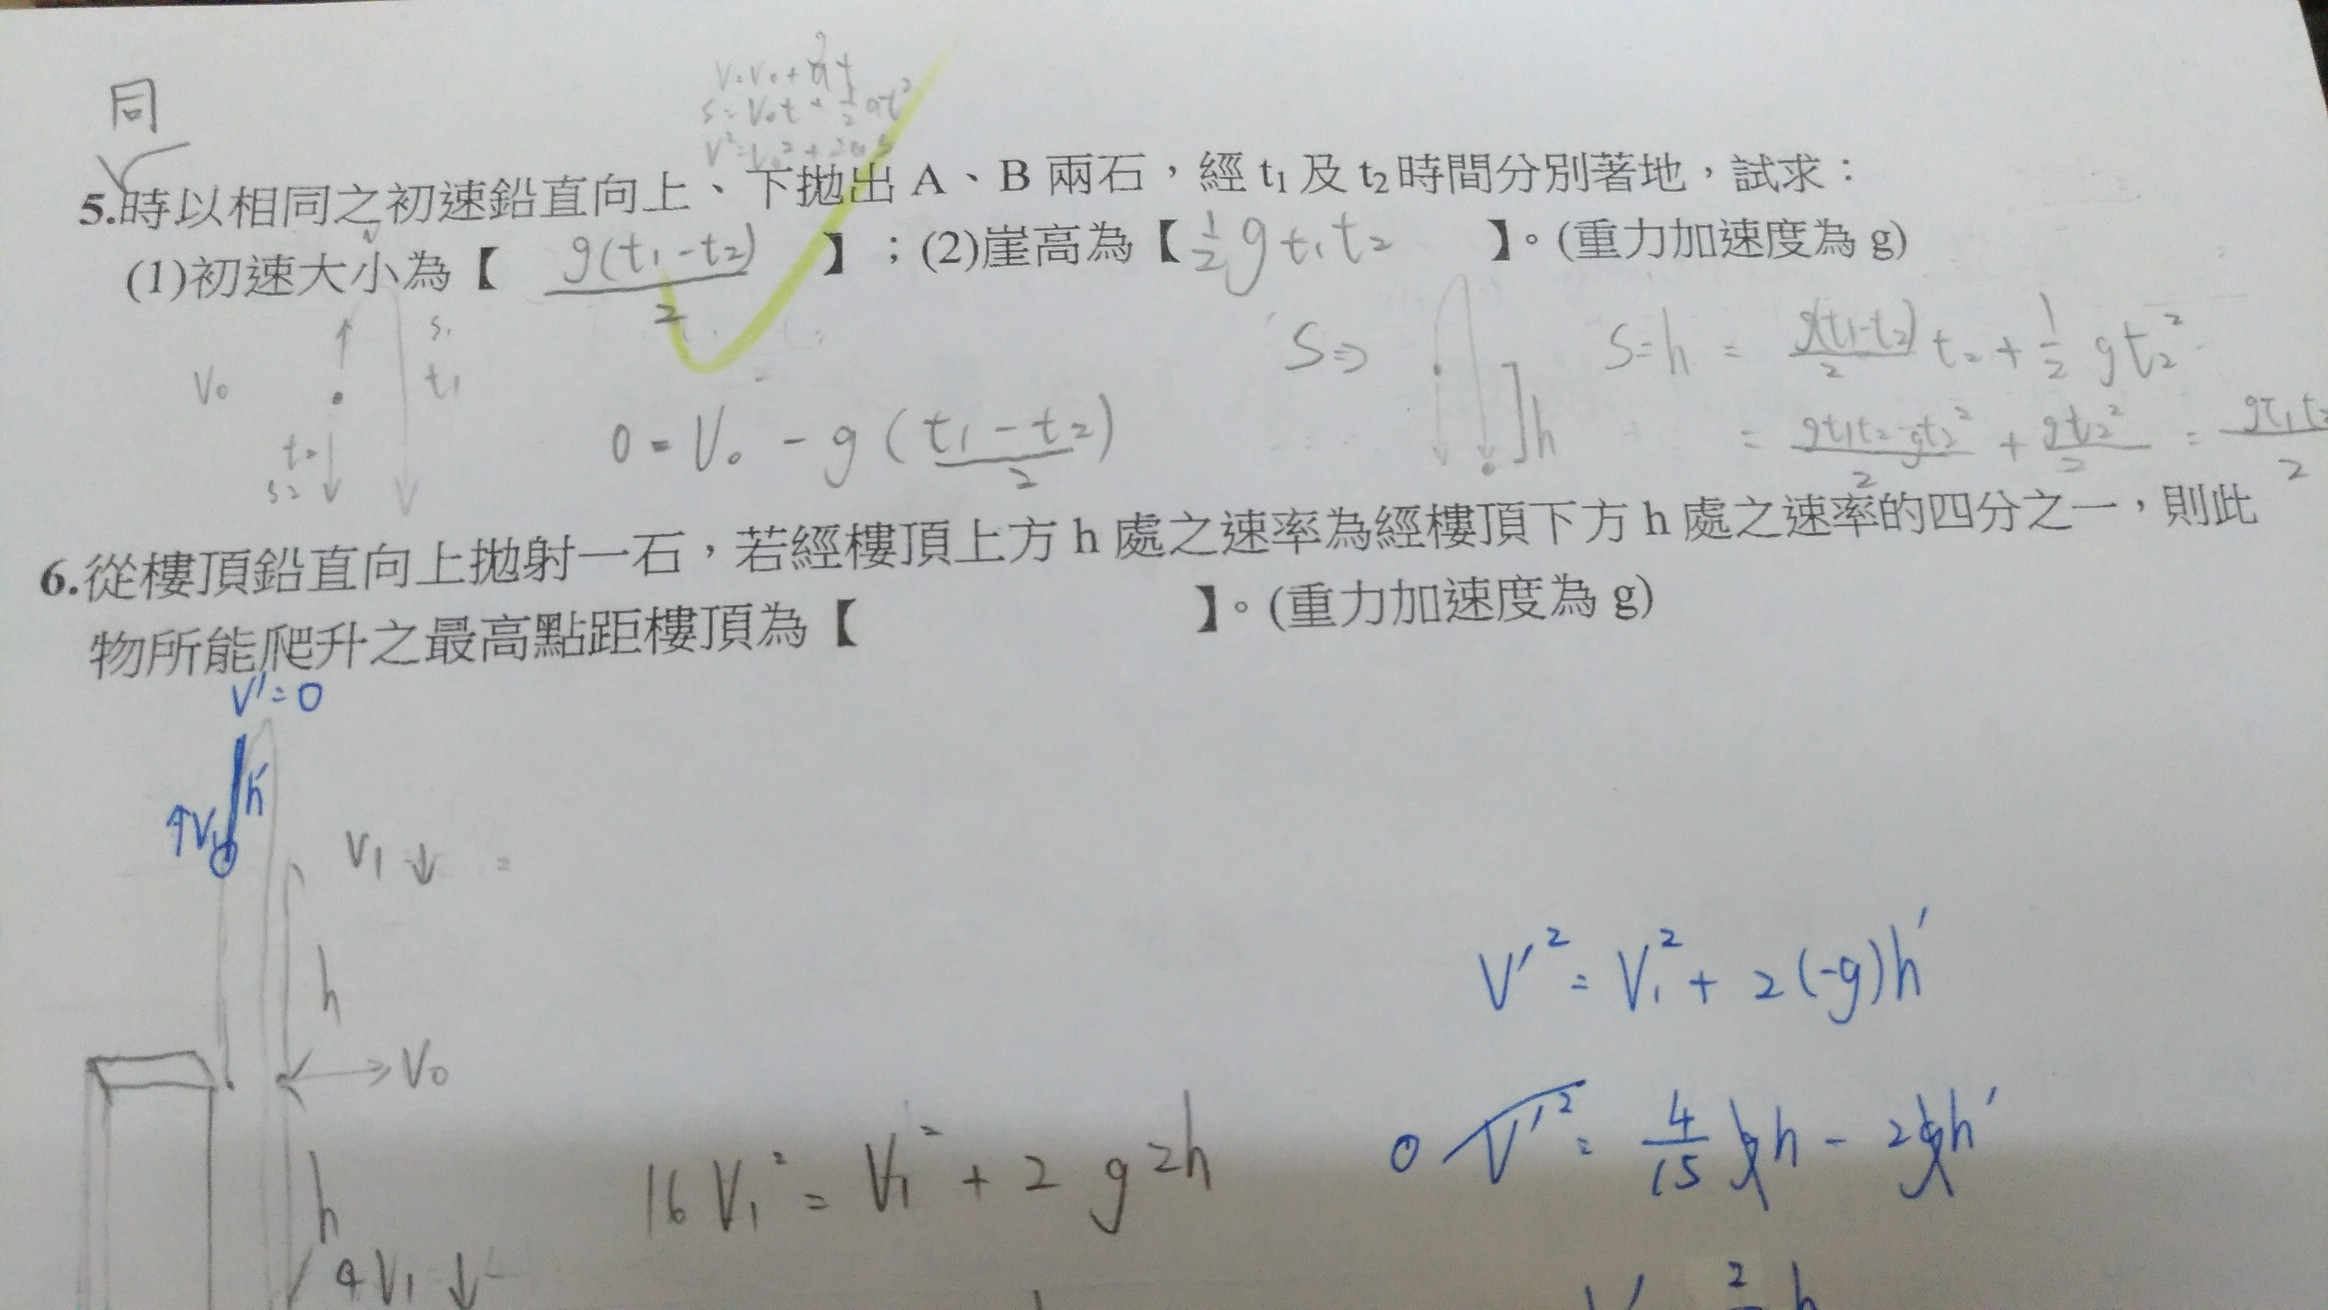 同
V=V₀+at
S=V₀t+½at²
V²=V₀²+2as
5.時以相同之初速鉛直向上、下拋出 A、B 兩石，經 t₁ 及 t₂ 時間分別著地，試求：
(1)初速大小為【 g(t₁-t₂)/2 】；(2)崖高為【 ½gt₁t₂ 】。(重力加速度為 g)
V₀
S₁
t₁
t₂
S₂
0=V₀-g(t₁-t₂/2)
S⇒
h
S=h=g(t₁-t₂)/2 t₂+½gt₂²
=gt₁t₂-gt₂²/2+gt₂²/2=gt₁t₂/2
6.從樓頂鉛直向上拋射一石，若經樓頂上方 h 處之速率為經樓頂下方 h 處之速率的四分之一，則此
物所能爬升之最高點距樓頂為【 】。(重力加速度為 g)
V'=0
h'
↑V₁
V₁↓
h
V₀
h
4V₁↓
16V₁²=V₁²+2g2h
V'²=V₁²+2(-g)h'
0 V'²=4/15gh-2gh'